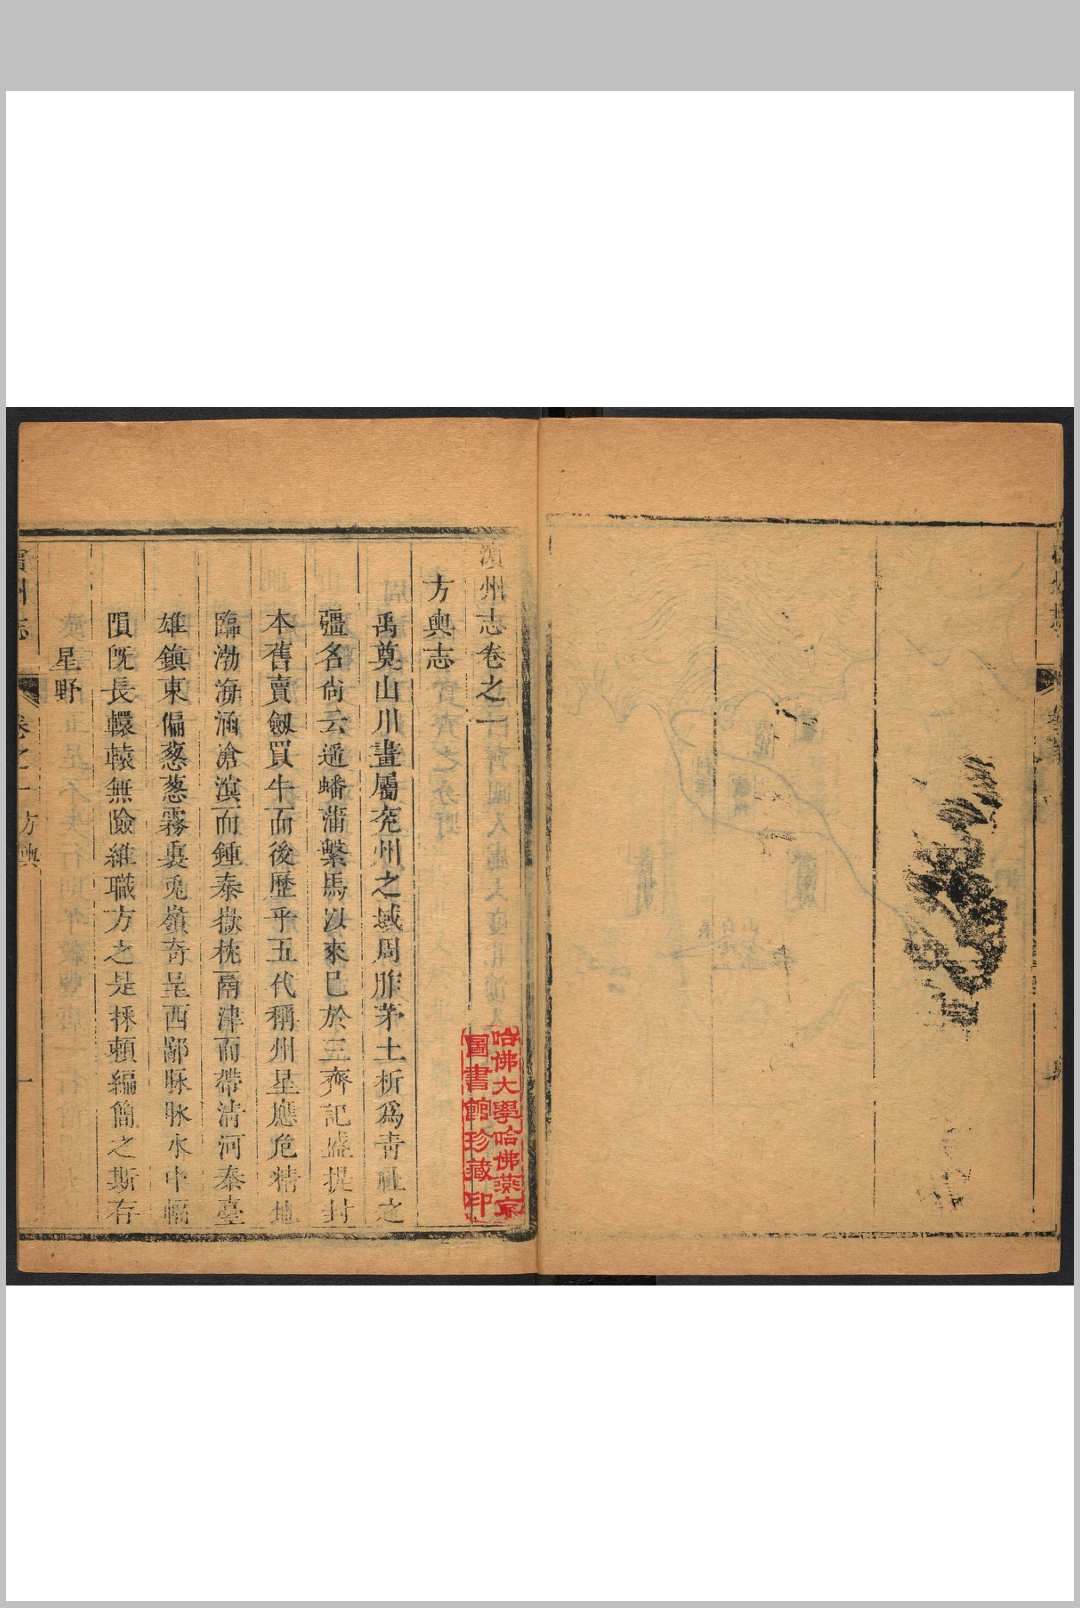 濱州志卷之一
方輿志
禹奠山川畫屬兖州之域周胙茅土析爲青社之
疆名尙云通蟠蒲繫馬以來已於三齊記盛提封
本舊賣劔買牛而後歷乎五代稱州星應危精地
臨渤海涵滄溟而鍾泰嶽枕鬲津而帶淸河秦臺
雄鎭東偏葱葱霧裹兎嶺奇呈西鄙脉脉水中幅
隕旣長轘轅無險維職方之是採頼編簡之斯存
星野
州志
卷之一
方輿
一
哈佛大學哈佛燕京
圖書館珍藏印